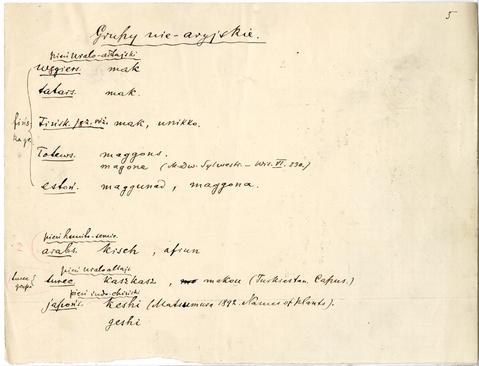 5
Grupy nie-aryjskie.
pień uralo-ałtajski
węgiers. mak
tatars. mak.
fińs.
Fińsk. mak, unikko.
Łotews. maggons.
magone (M. Dw. Sylwestr. – Wis. VI. 230.)
estoń. maggunad, maggona.
pień hamito-semic.
2 arabs. kisch, afiun
pień uraloałtajs.
turec. kaszkasz, makou (Turkiestan. Capus.)
pień indo-chiński
japońs. keshi (Matsumura 1892. Names of plants).
geshi